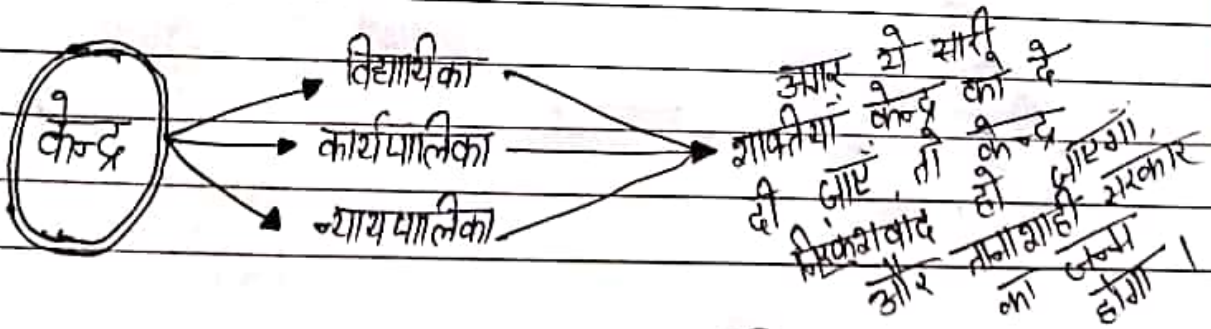 केन्द्र
विद्यायिका
कार्यपालिका
न्यायपालिका
अगर ये सारी
शाक्तीयां केन्द्र को दे
दी जाएं तो केन्द्र
निरंकुशवाद हो जाएगा,
और तानाशाही सरकार
का जन्म
होगा।